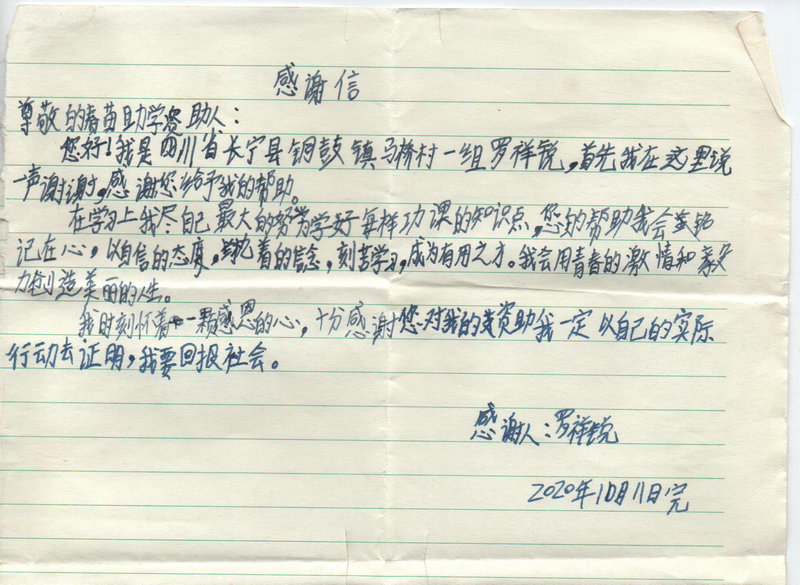 感谢信
尊敬的春苗助学资助人:
您好!我是四川省长宁县铜鼓镇马桥村一组罗祥锐,首先我在这里说
一声谢谢,感谢您给予我的帮助。
在学习上我尽自己最大的努力学好每样功课的知识点,您的帮助我会铭
记在心,以自信的态度,执着的信念,刻苦学习,成为有用之才。我会用青春的激情和毅
力创造美丽的人生。
我时刻怀着一颗感恩的心,十分感谢您对我的资助我一定以自己的实际
行动去证明,我要回报社会。
感谢人:罗祥锐
2020年10月11日完